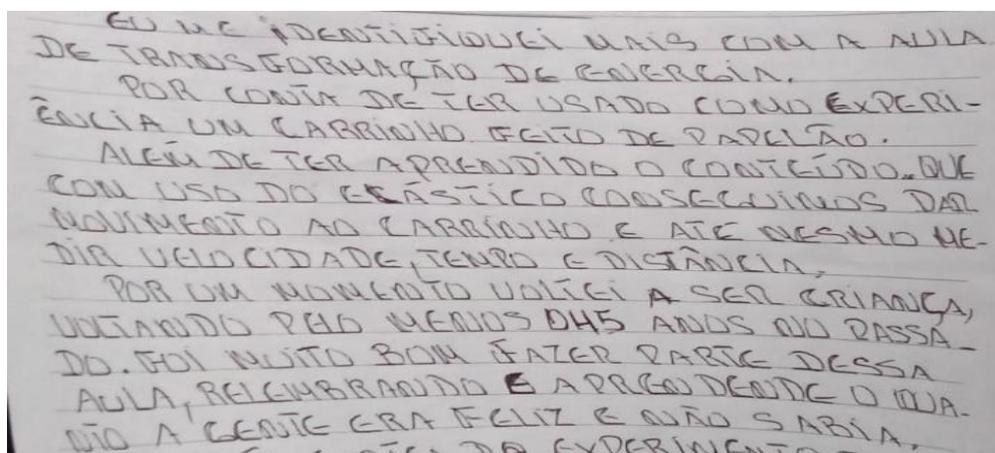 EU ME IDENTIFIQUEI MAIS COM A AULA
DE TRANSFORMAÇÃO DE ENERGIA.
POR CONTA DE TER USADO COMO EXPERI-
ÊNCIA UM CARRINHO FEITO DE PAPELÃO.
ALÉM DE TER APRENDIDO O CONTEÚDO. QUE
COM USO DO ELÁSTICO CONSEGUIMOS DAR
MOVIMENTO AO CARRINHO E ATÉ MESMO ME-
DIR VELOCIDADE, TEMPO E DISTÂNCIA,
POR UM MOMENTO VOLTEI A SER CRIANÇA,
VOLTANDO PELO MENOS 45 ANOS NO PASSA-
DO. FOI MUITO BOM FAZER PARTE DESSA
AULA, RELEMBRANDO E APRENDENDE O QUA-
NTO A GENTE ERA FELIZ E NÃO SABIA.
DO EXPERIMENTO